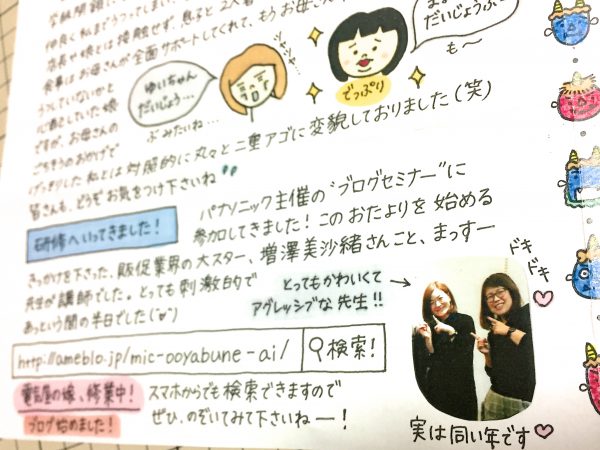 仲良く私までうつってしまい、
店長や娘とは接触せず、息子と2人
食事はお母さんが全面サポートしてくれて、もうお母さん
うっていないかと
心配をしていた娘
ですが、お母さんの
ごちそうのおかげで
げっそりした私とは対照的に丸々と二重アゴに変貌しておりました(笑)
皆さんも、どうぞお気をつけ下さいね
ゆいちゃん
だいじょう…
ぶみたいね…
でっぷり
だいじょうぶ
も〜
研修へいってきました!
パナソニック主催の"ブログセミナー"に
参加してきました!このおたよりを始める
きっかけを下さった、販促業界の大スター、増澤美沙緒さんこと、まっすー
先生が講師でした。とっても刺激的で
あっという間の半日でした
とってもかわいくて
アグレッシブな先生!!
ドキ
ドキ
http://ameblo.jp/mic-ooyabune-ai/
検索!
電気屋の嫁、修業中!
ブログ始めました!
スマホからでも検索できますので
ぜひ、のぞいてみて下さいねー!
実は同い年です